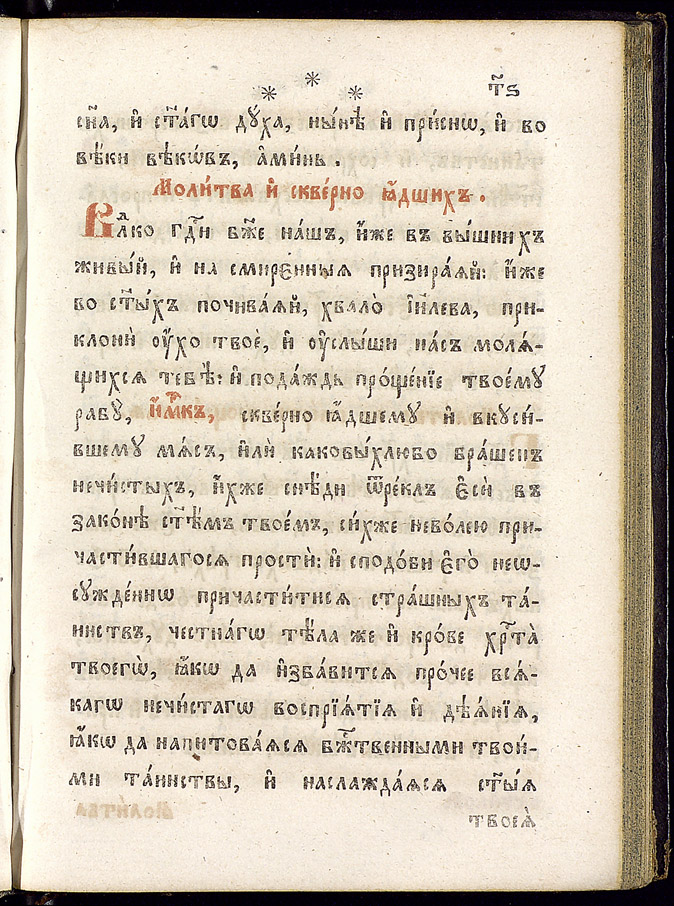 т҃ѕ
сн҃а, и҆ ст҃а́гѡ дꙋ́ха, ны́нѣ и҆ при́снѡ, и҆ во
вѣ́ки вѣкѡ́въ, а҆ми́нь .
Моли́тва и҆ скве́рно ꙗ҆́дшихъ .
Влⷣко гдⷭ҇и бж҃е на́шъ, и҆́же въ вы́шнихъ
живы́й, и҆ на смире́нныѧ призира́ѧй: и҆́же
во ст҃ы́хъ почива́ѧй, хвало̀ і҆и҃лева, при-
клонѝ ᲂу҆́хо твоѐ, и҆ ᲂу҆слы́ши на́съ молѧ́-
щихсѧ тебѣ̀: и҆ пода́ждь проще́нїе твоемꙋ̀
рабꙋ̀, и҆́мⷬ҇къ, скве́рно ꙗ҆́дшемꙋ и҆ вкꙋси́-
вшемꙋ мѧ́съ, и҆лѝ каковы́хлюбо бра́шенъ
нечи́стыхъ, и҆́хже снѣ́ди ѿре́клъ є҆сѝ въ
зако́нѣ ст҃ѣ́мъ твое́мъ, си́хже нево́лею при-
части́вшагосѧ простѝ: и҆ сподо́би є҆го̀ неѡ-
сꙋжде́ннѡ причасти́тисѧ стра́шныхъ та́-
инствъ, честна́гѡ тѣ́ла же и҆ кро́ве хрⷭ҇та̀
твоегѡ̀, ꙗ҆́кѡ да и҆зба́витсѧ про́чее всѧ́-
кагѡ нечи́стагѡ воспрїѧ́тїѧ и҆ дѣѧ́нїѧ,
ꙗ҆́кѡ да напитова́ѧсѧ бжⷭ҇твенными твои́-
ми та́инствы, и҆ наслажда́ѧсѧ ст҃ы́ѧ
твоеѧ̀